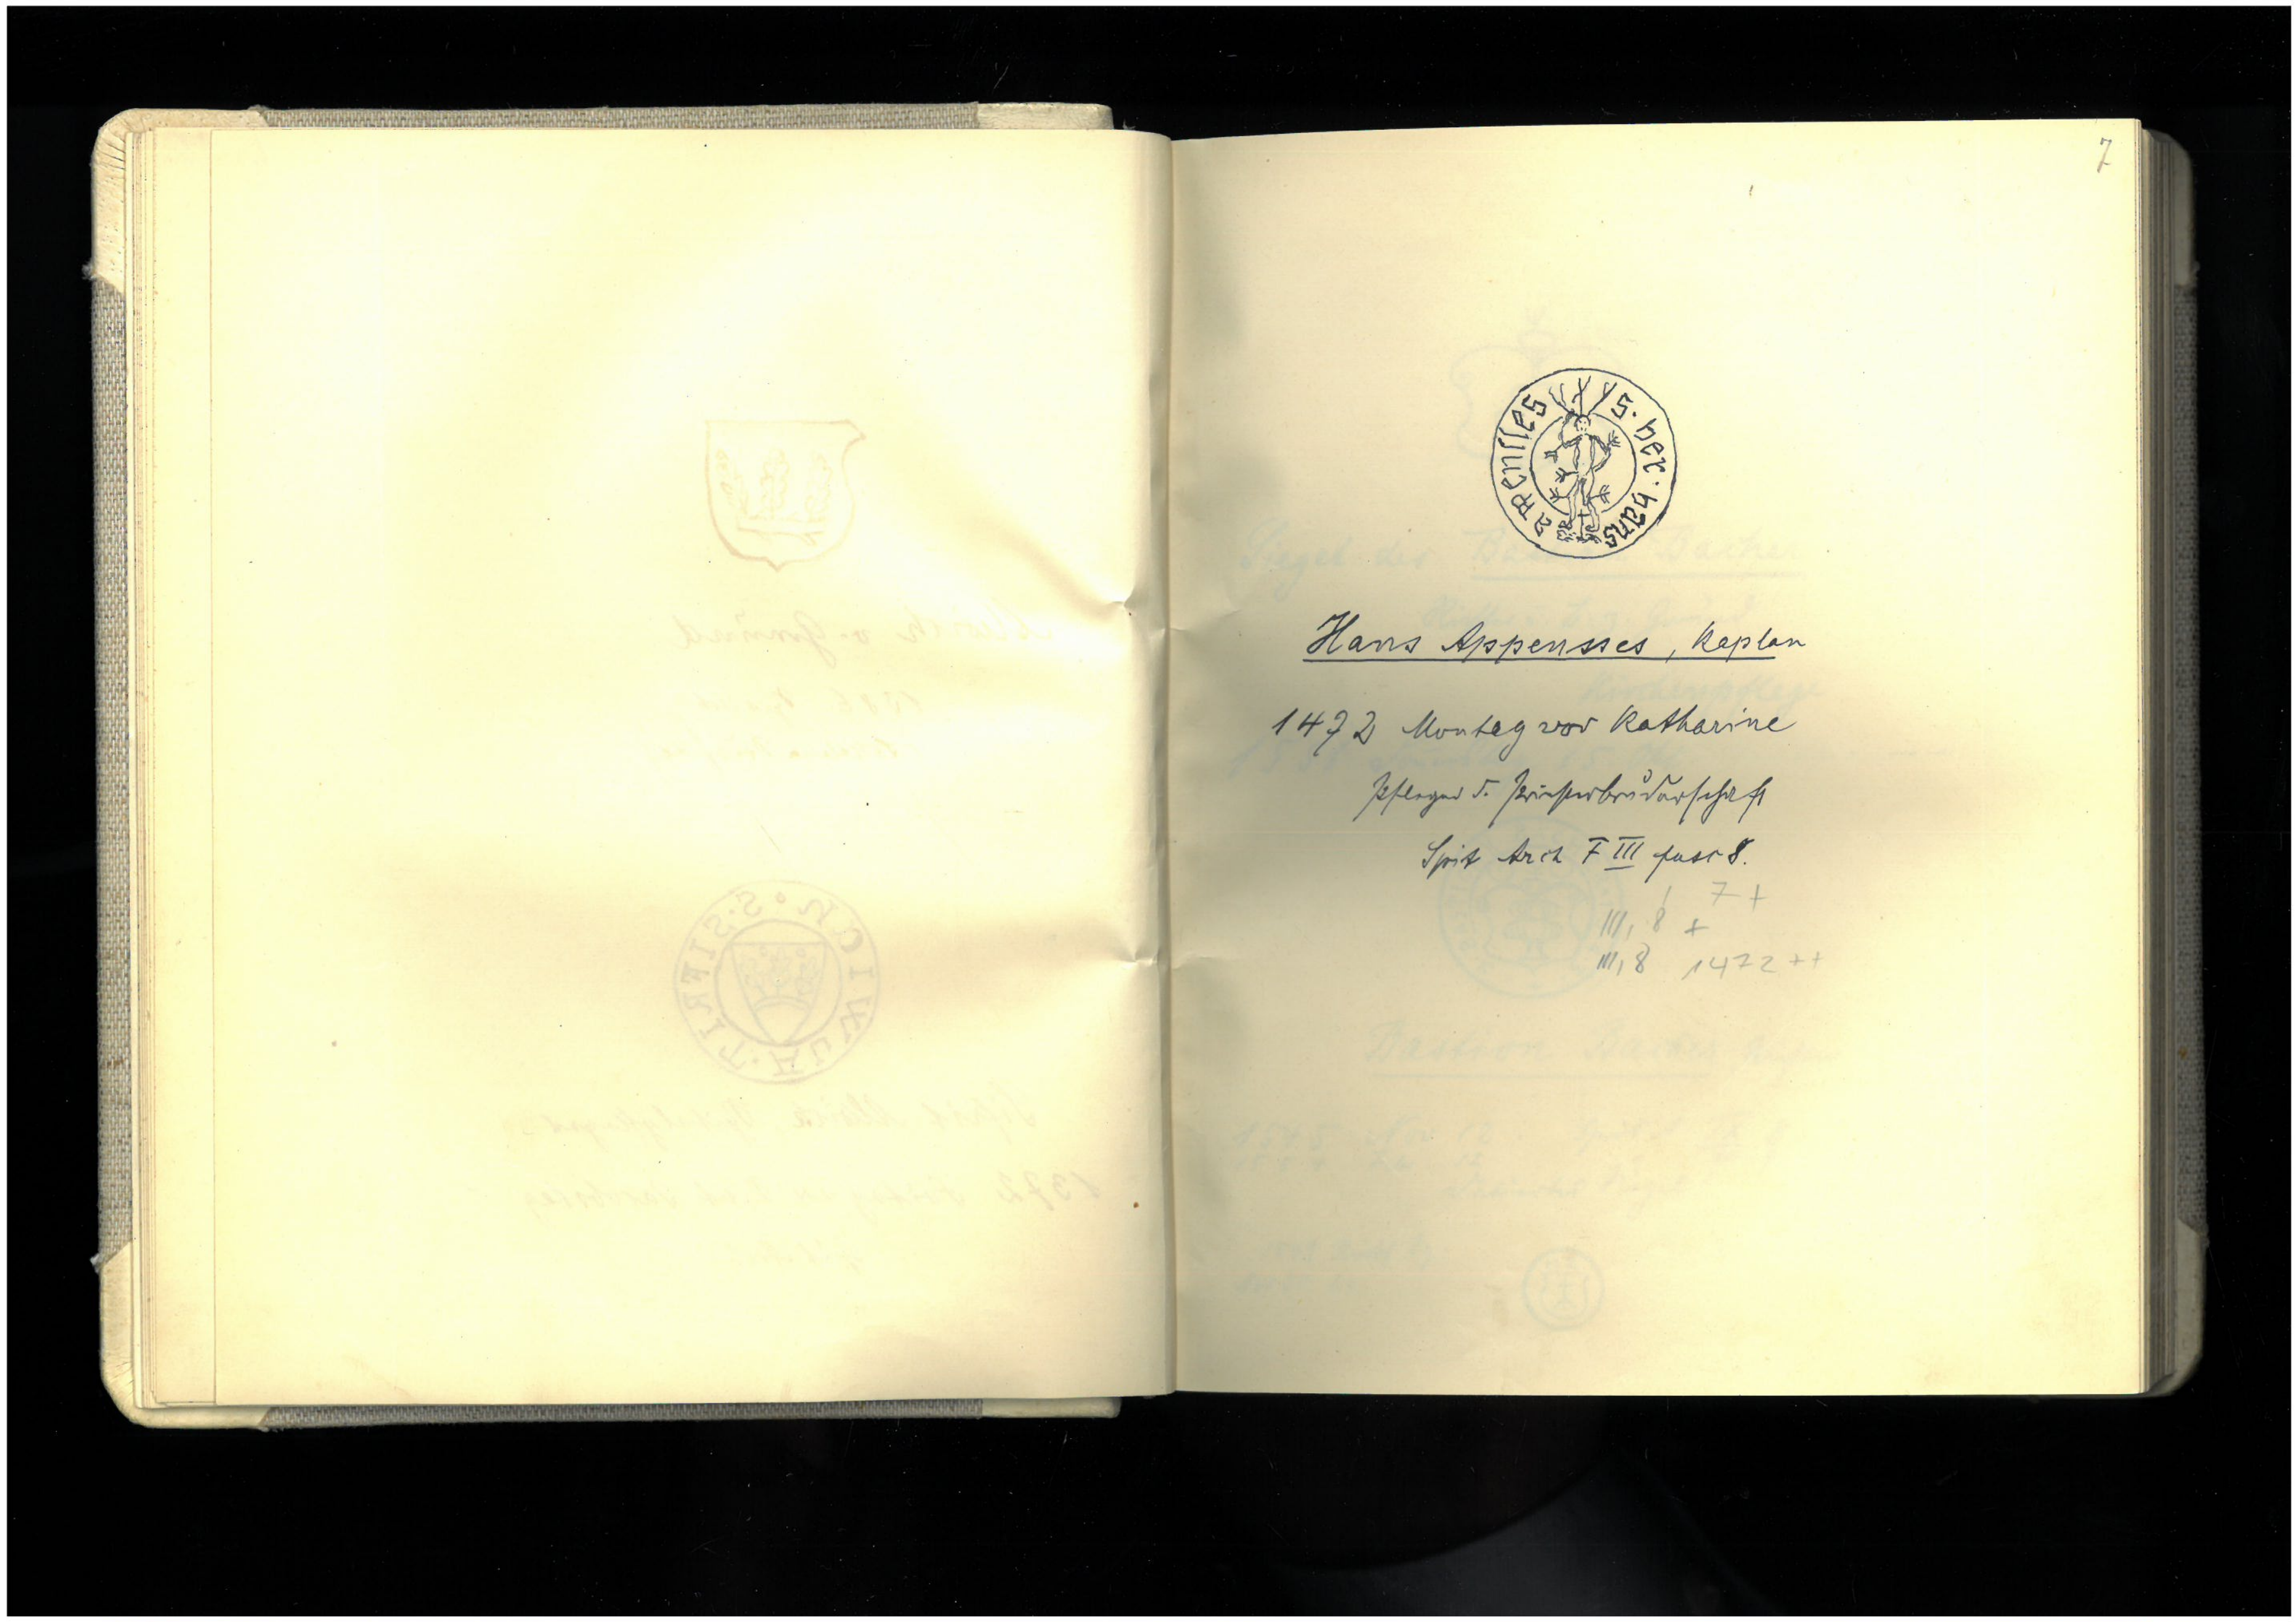 7
s. her. hans appensses
Hans Appensses, Kaplan
1472 Montag vor Katharine
Pfleger d. Priesterbruderschaft
Spit Arch F III fasc 8.
7 +
III, 8 +
III, 8 1472 ++